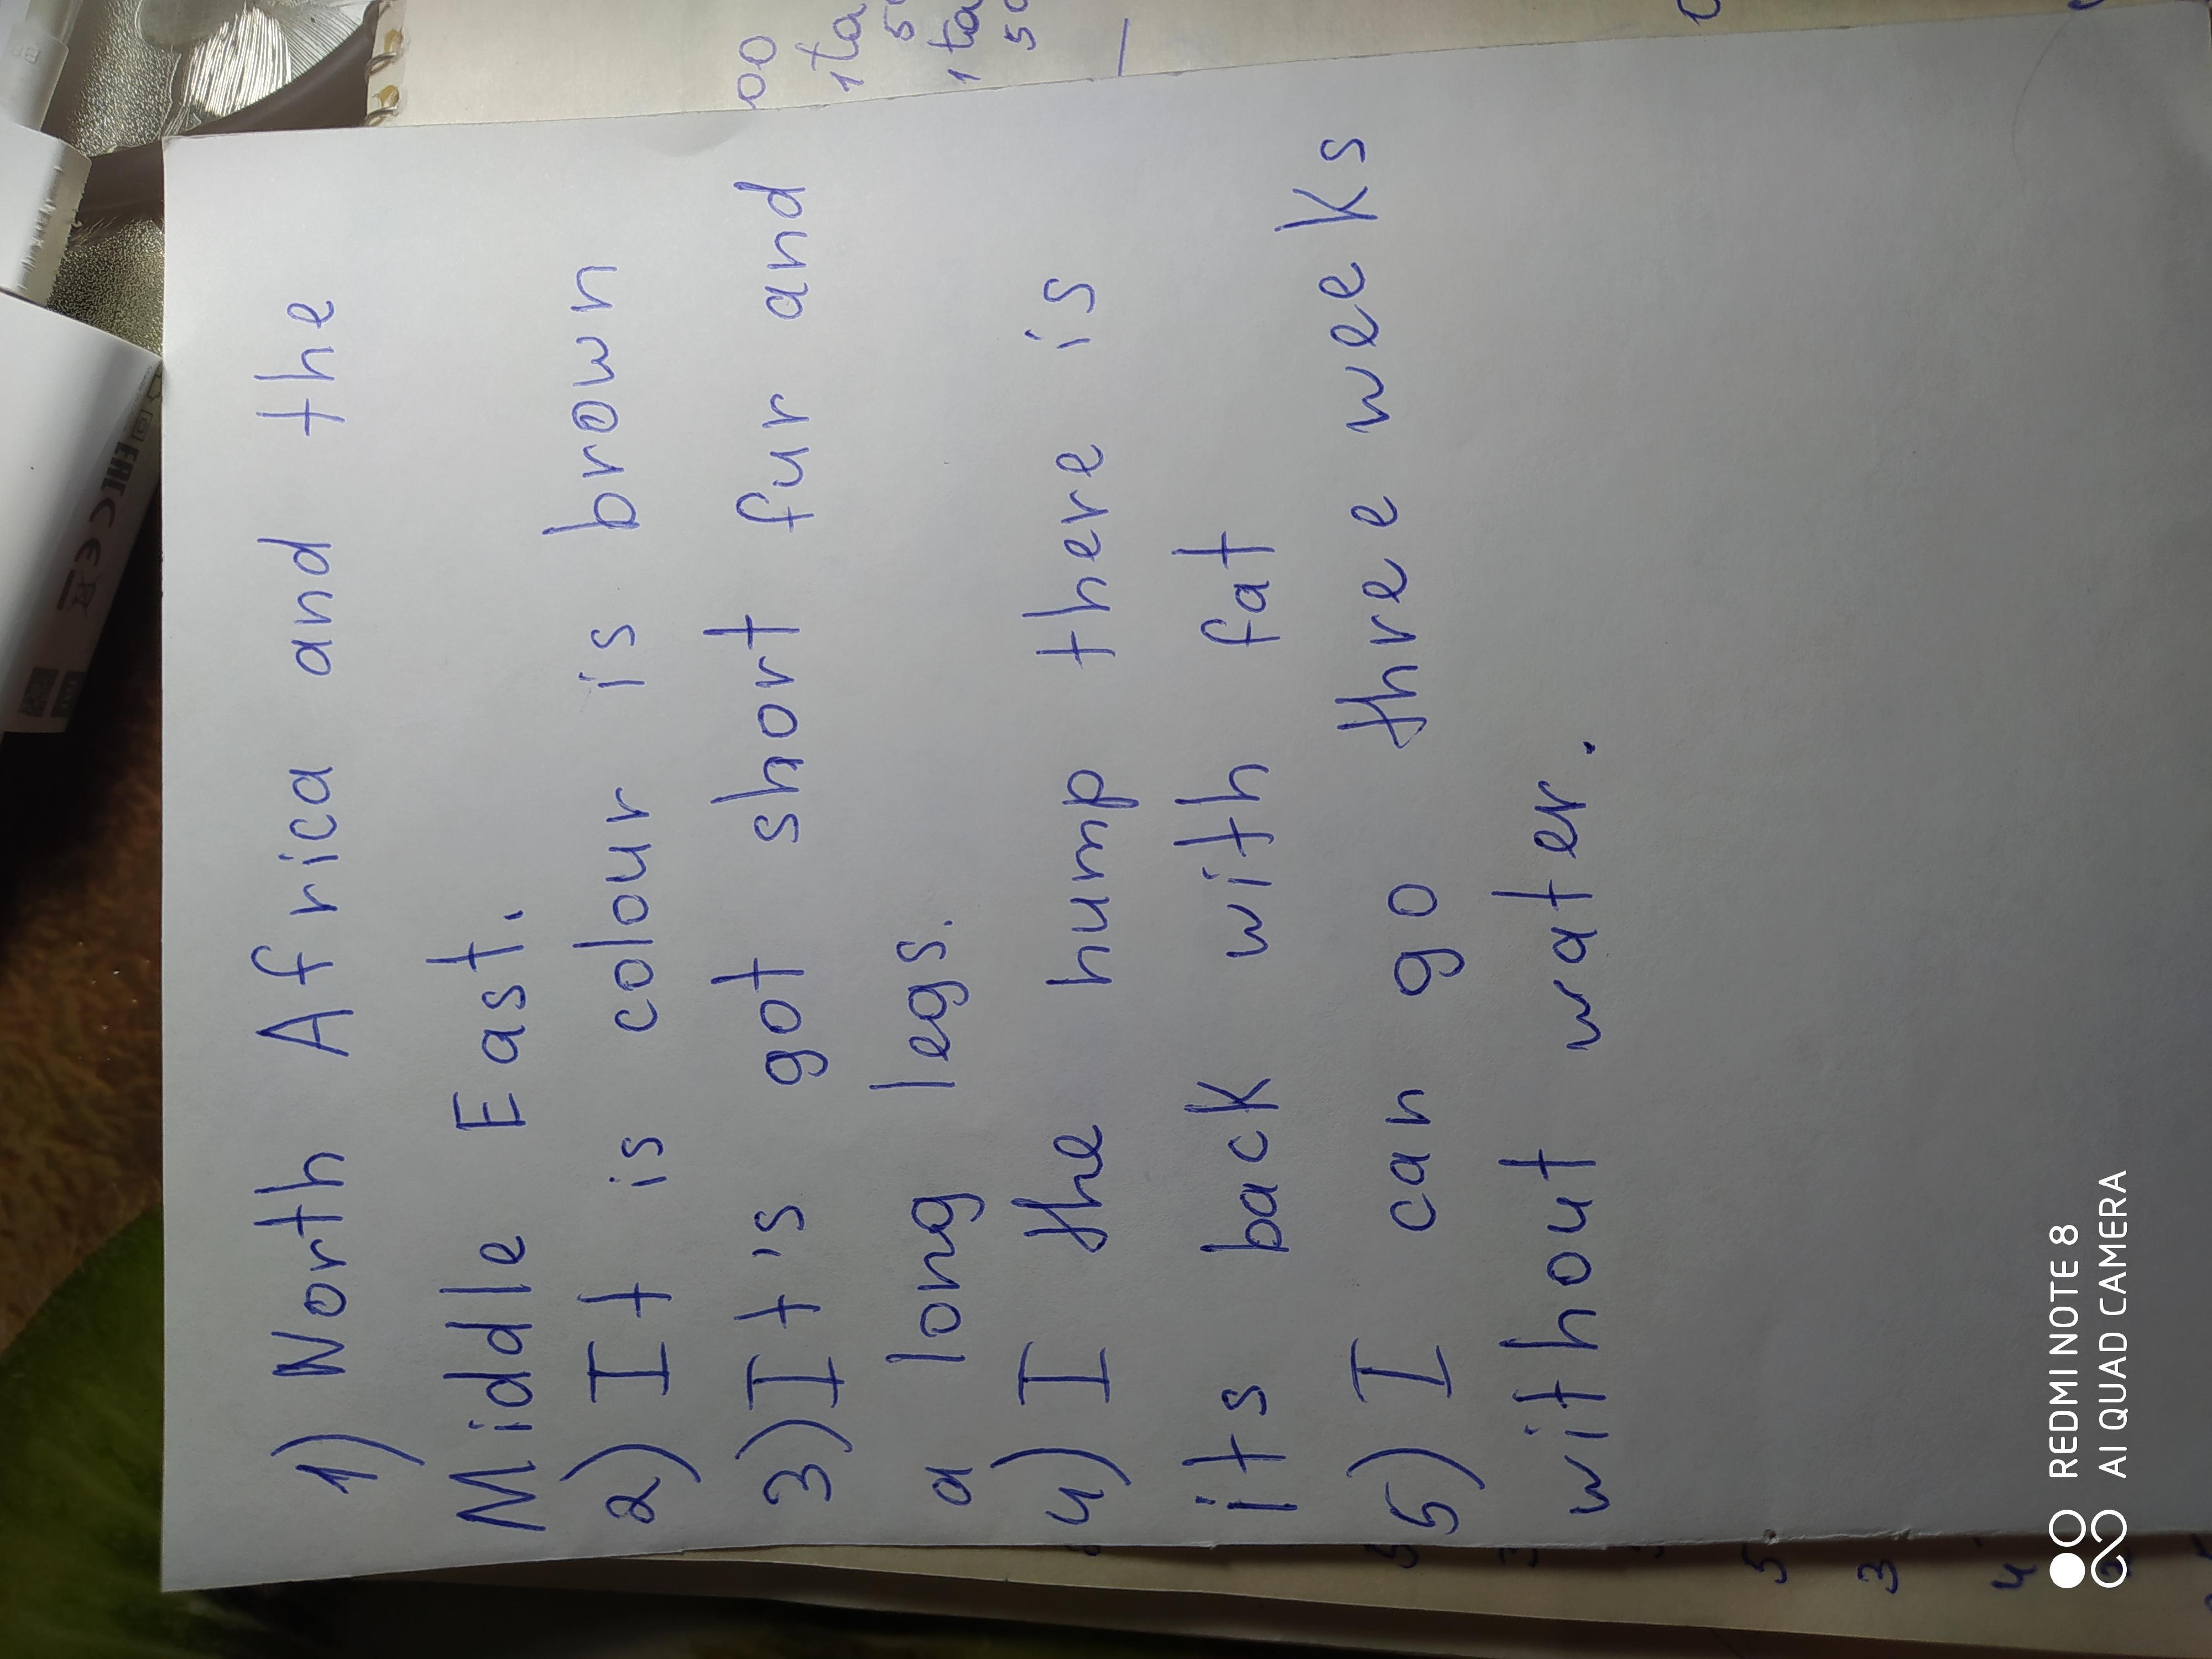 1) North Africa and the
Middle East.
2) It is colour is brown
3) It's got short fur and
a long legs.
4) I the hump there is
its back with fat
5) I can go three weeks
without water.
00
1ta
1ta
5
3
4
EAC CE
REDMI NOTE 8
AI QUAD CAMERA